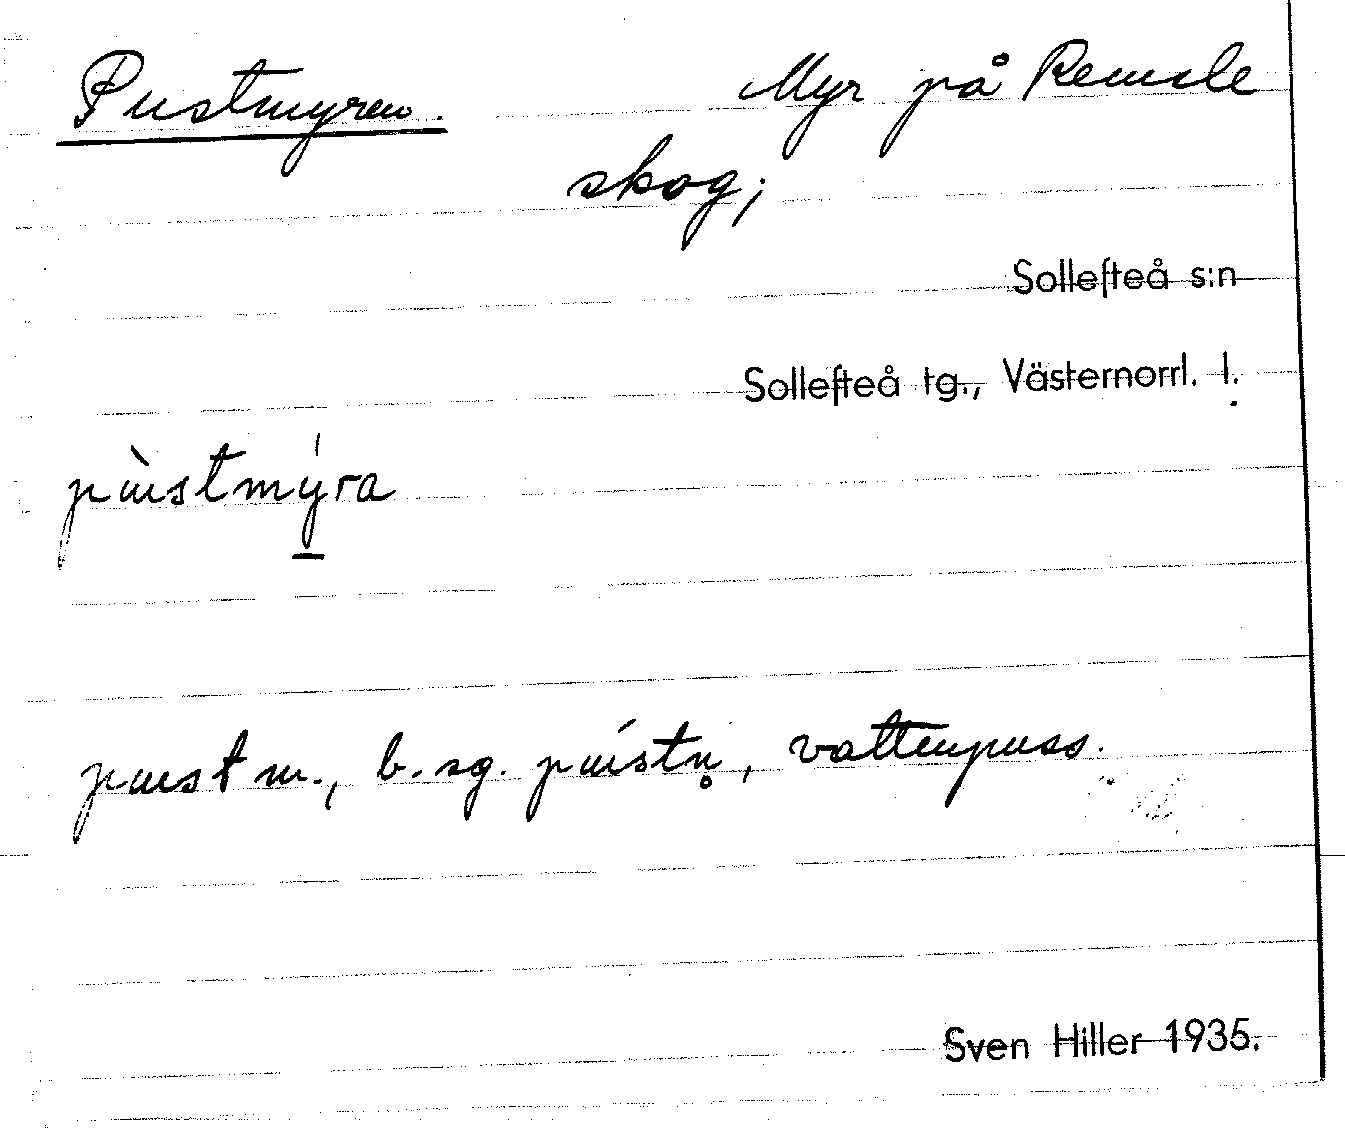 Pustmyren. Myr på Remsle
skog;
Sollefteå s:n
Sollefteå tg., Västernorrl. l.
pùstmýra
pust m., b. sg. pústn̥, vattenpuss.
Sven Hiller 1935.